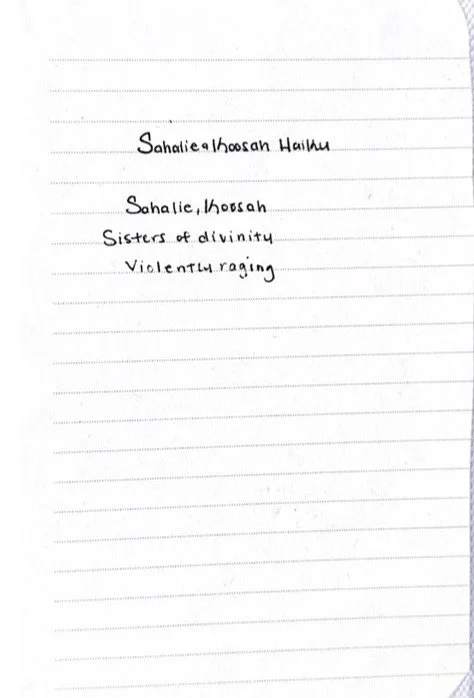 Sahalie & Koosah Haiku
Sahalie, Koosah
Sisters of divinity
Violently raging